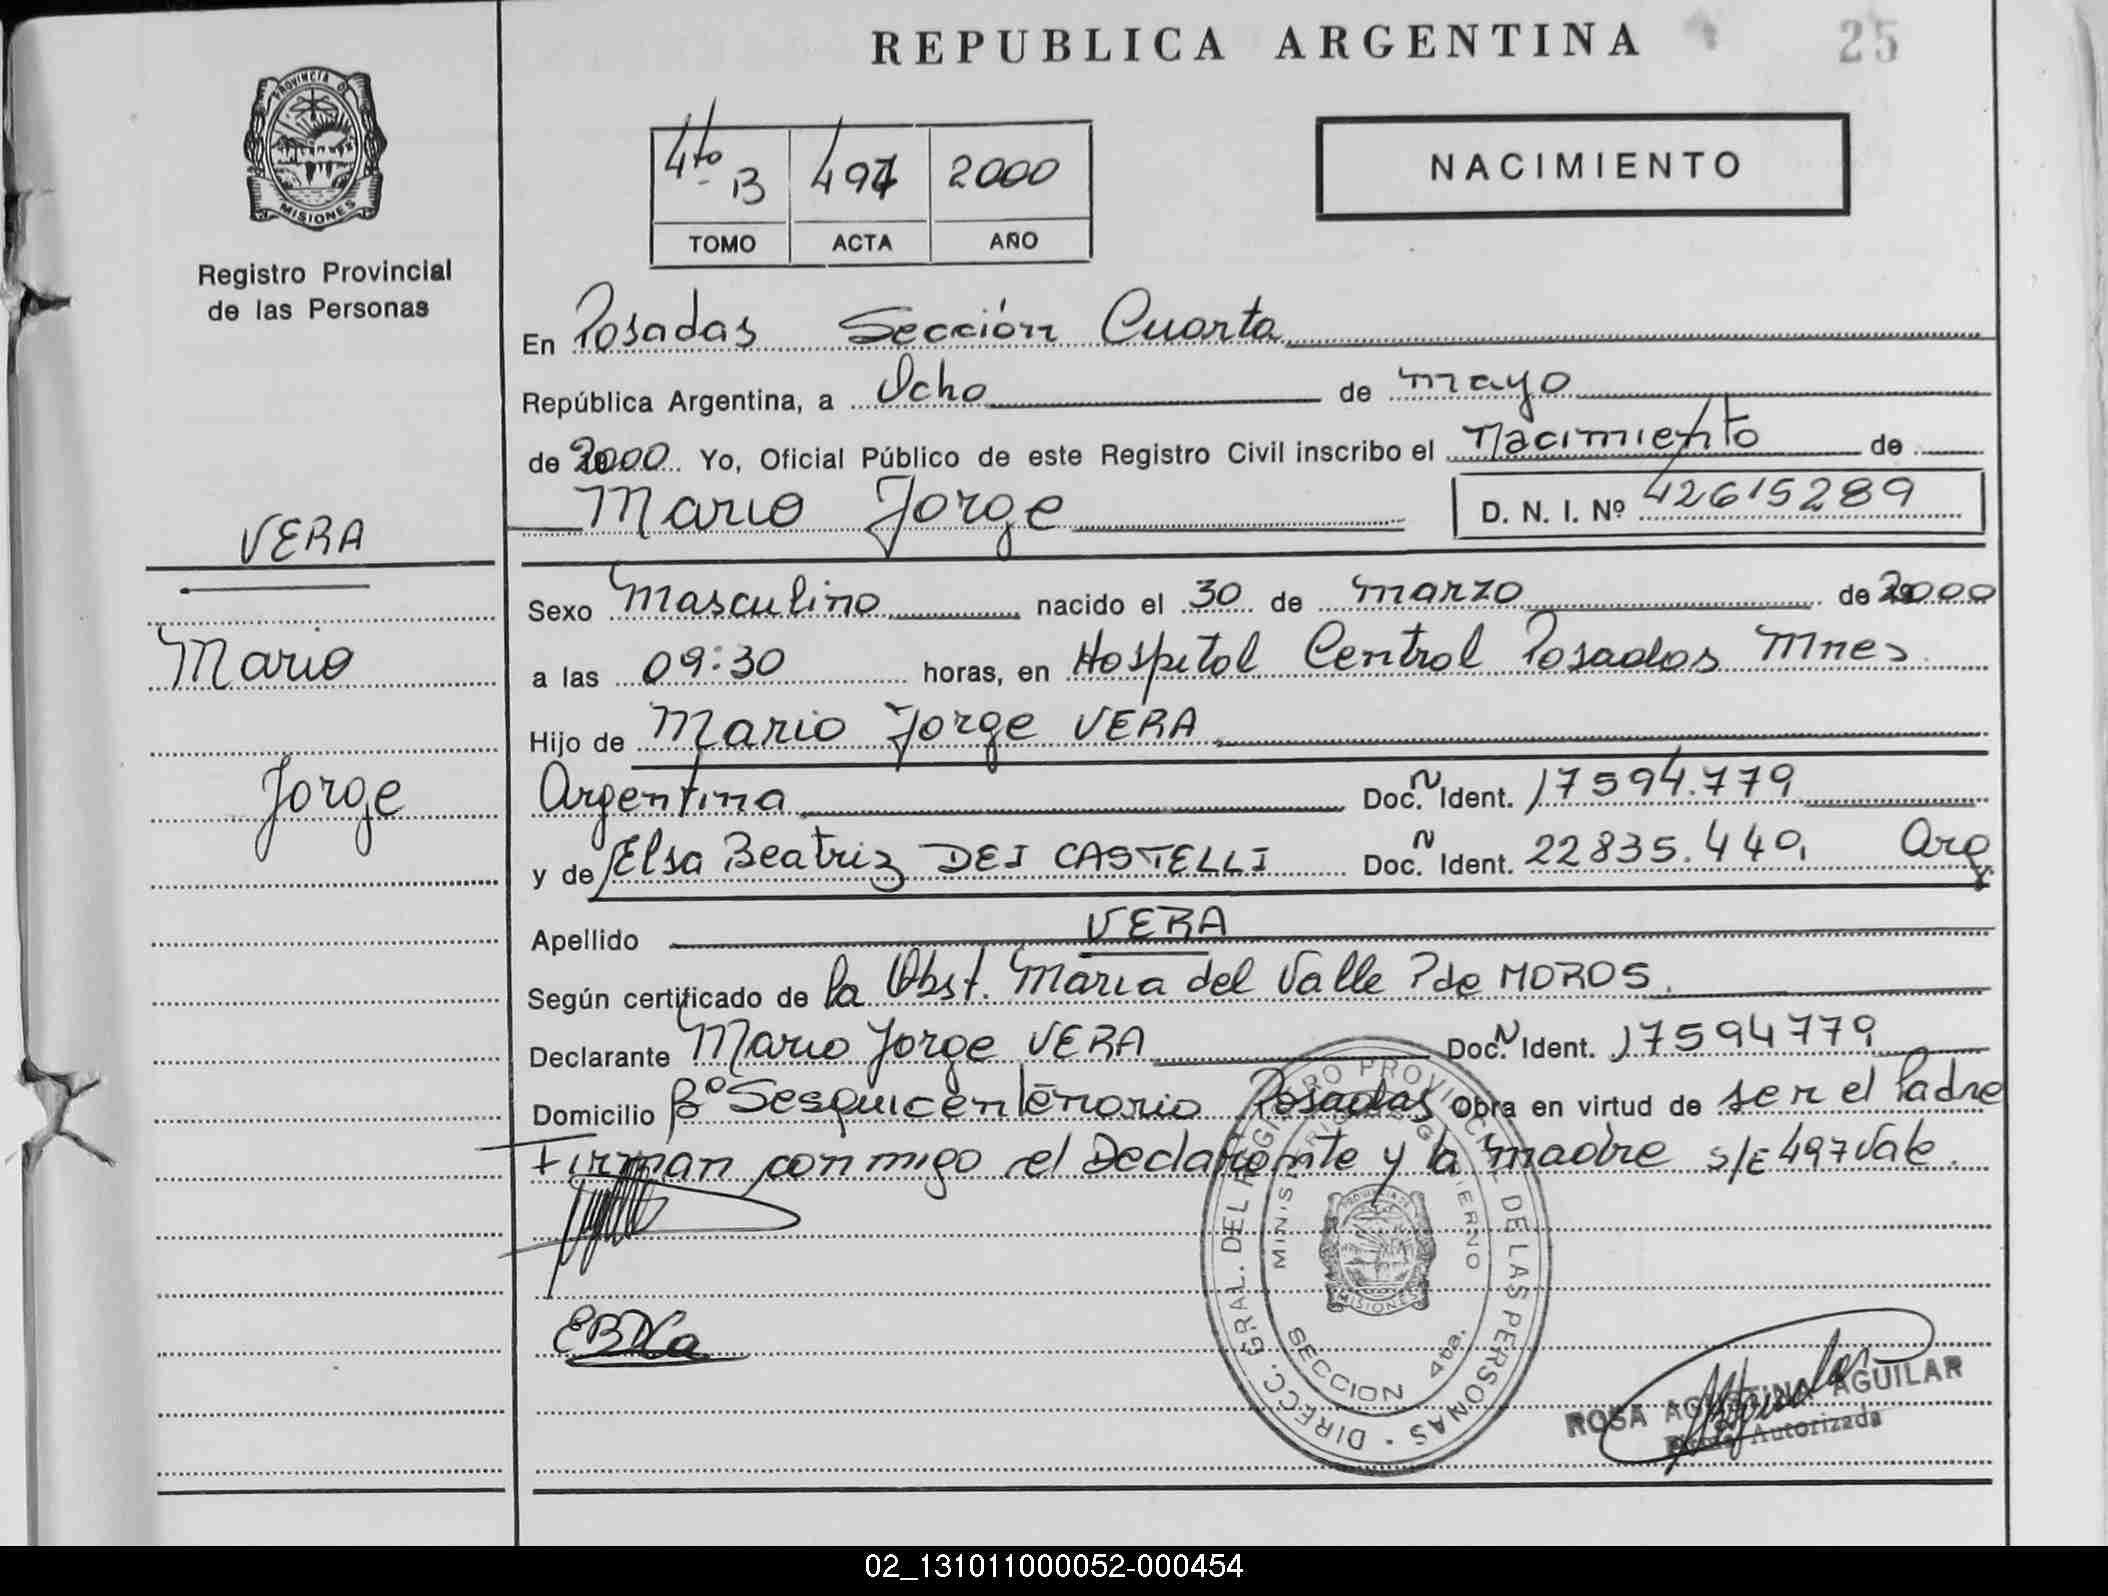 REPUBLICA ARGENTINA
25
PROVINCIA DE
MISIONES
Registro Provincial
de las Personas
4to B 497 2000
TOMO ACTA AÑO
NACIMIENTO
En Posadas Sección Cuarta
República Argentina, a Ocho de mayo
de 2000 Yo, Oficial Público de este Registro Civil inscribo el Nacimiento de
Mario Jorge
D. N. I. Nº 42615289
VERA
Mario
Jorge
Sexo Masculino nacido el 30 de marzo de 2000
a las 09:30 horas, en Hospital Central Posadas Mnes
Hijo de Mario Jorge VERA
Argentina Doc. N Ident. 17594.779
y de Elsa Beatriz DEI CASTELLI Doc. N Ident. 22835.440, Arg
Apellido VERA
Según certificado de la Obst. Maria del Valle P de MOROS.
Declarante Mario Jorge VERA Doc. N Ident. 17594779
Domicilio Bº Sesquicentenario Posadas Obra en virtud de ser el Padre
Firman conmigo el Declarante y la madre s/E 497 Vale.
DIRECC. GRAL. DEL REGISTRO PROVINCIAL DE LAS PERSONAS
MINISTERIO DE GOBIERNO
PROVINCIA DE
MISIONES
SECCION 4ta.
EBDCa
ROSA AGUSTINA AGUILAR
Firma Autorizada
02_131011000052-000454